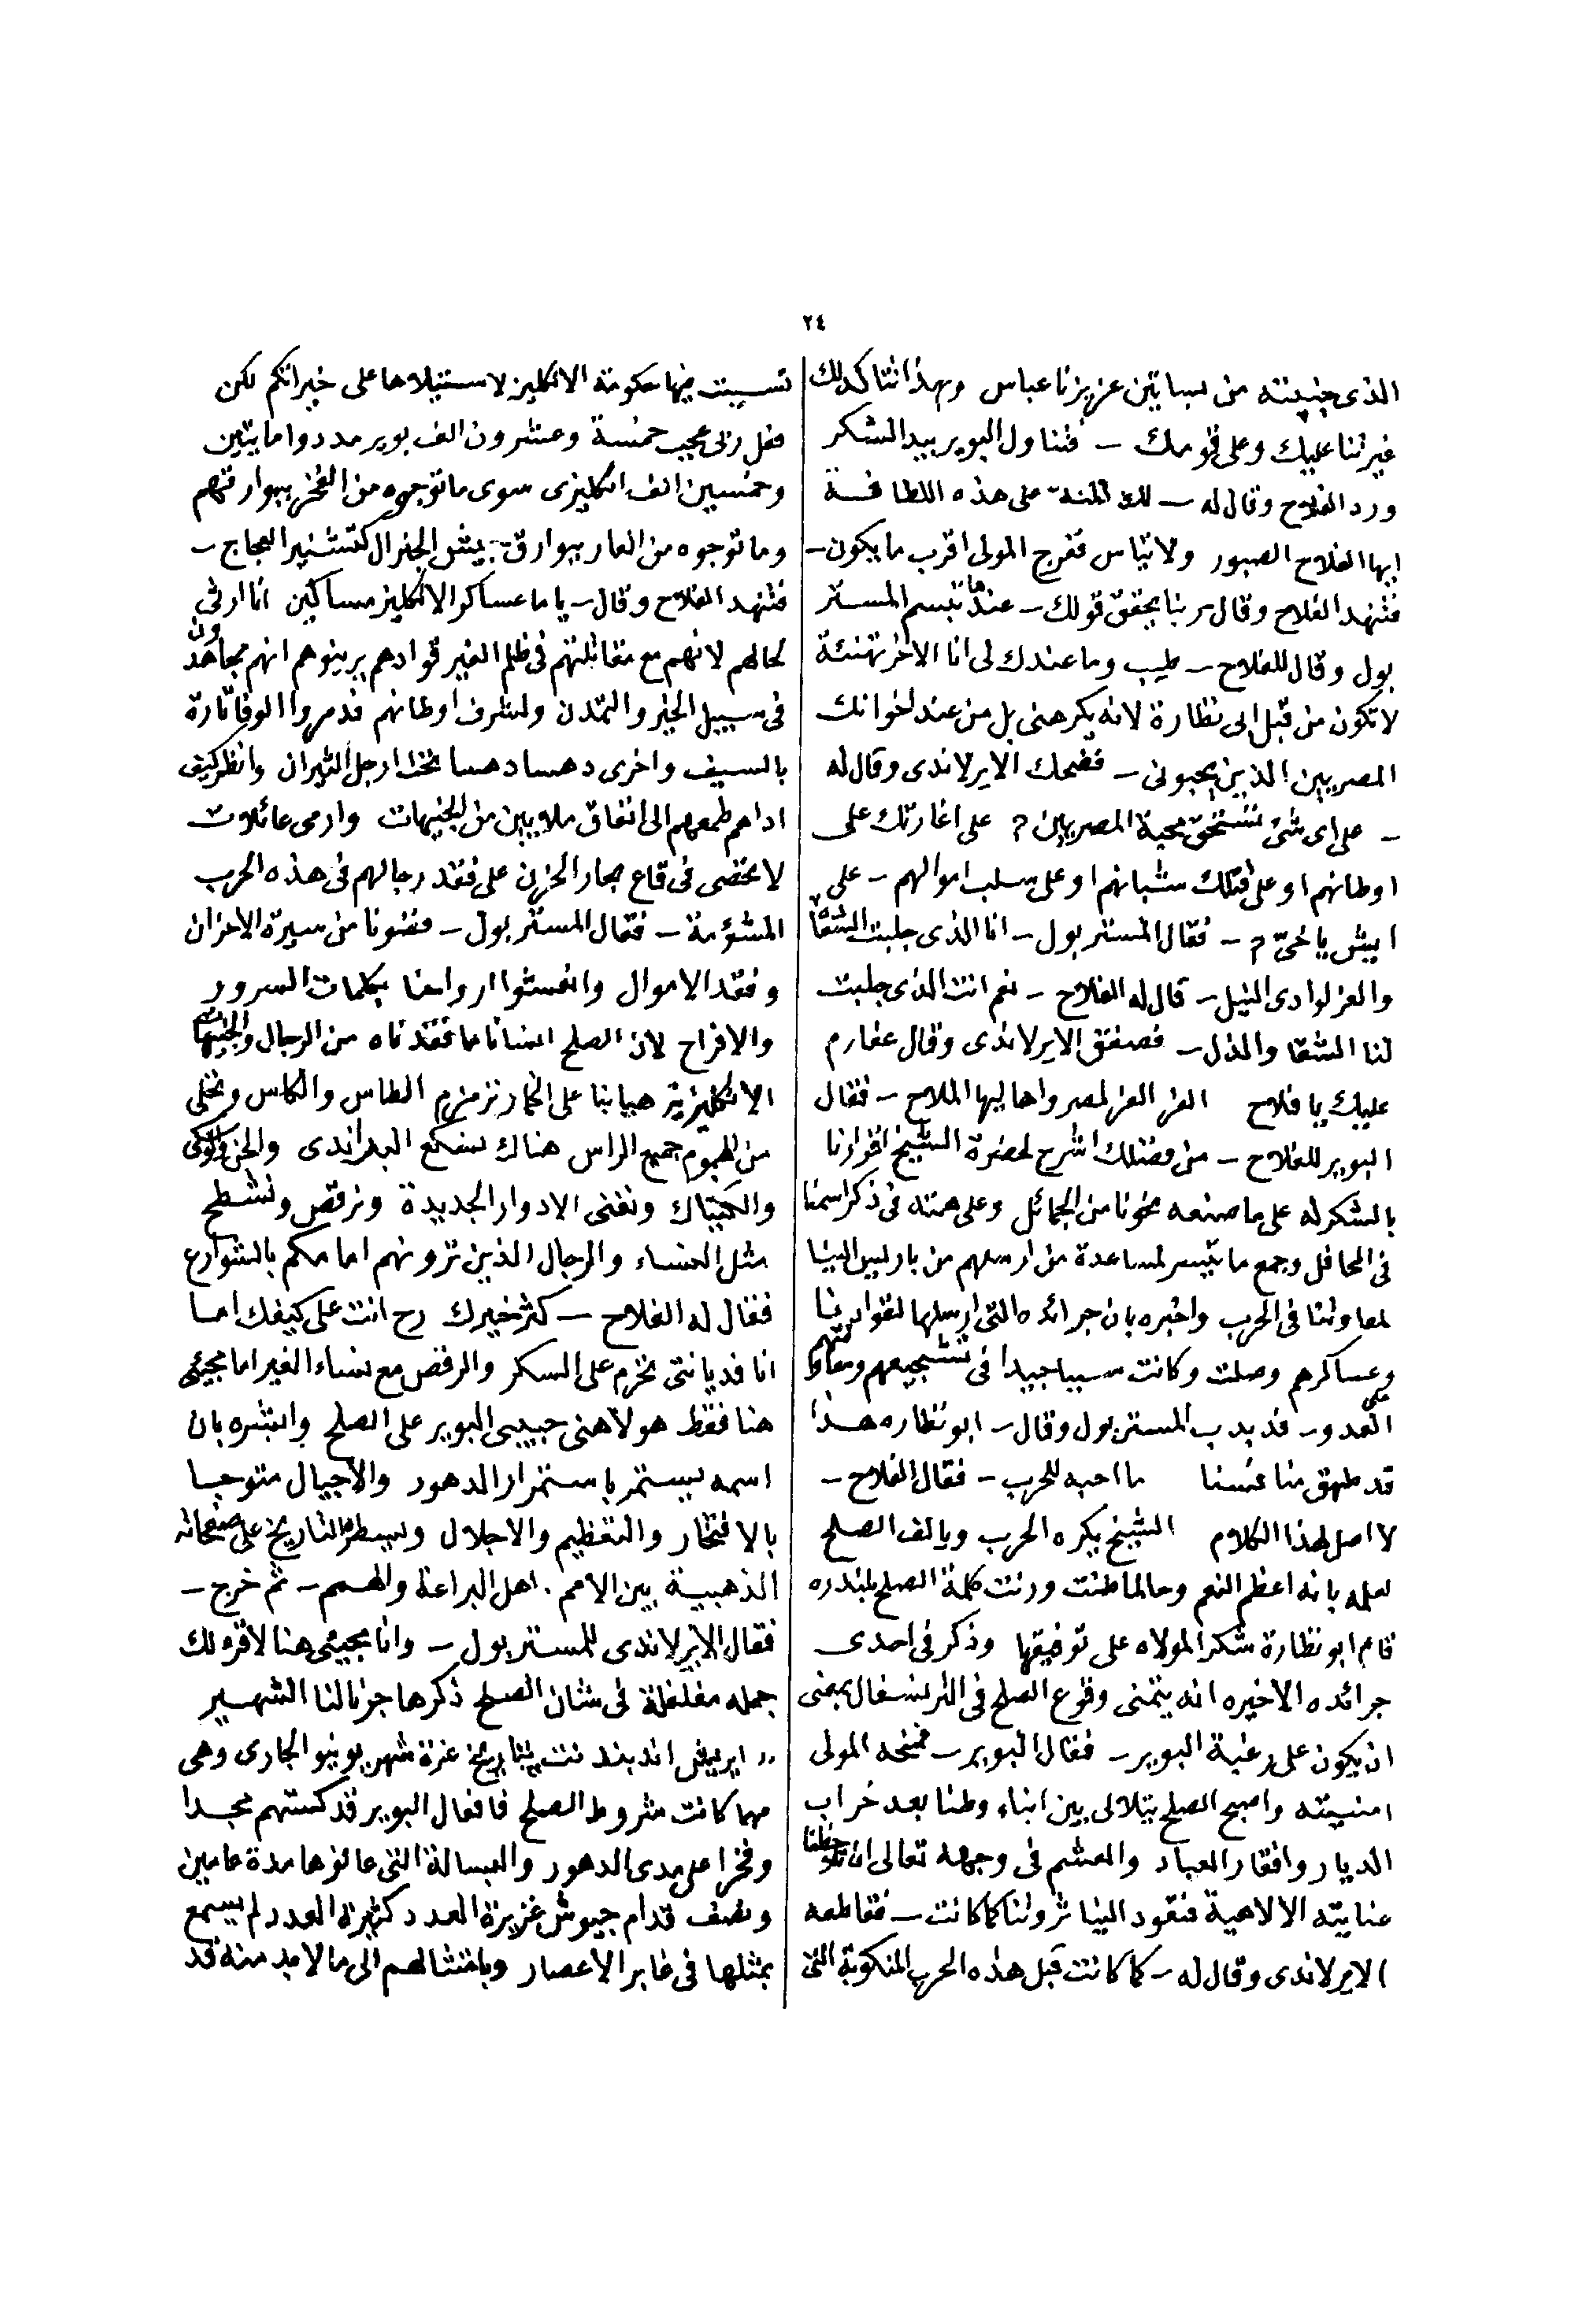 ٢٤
الذى جنينته من بساتين عزيزنا عباس وبهذا نتاكد لك
غيرتنا عليك وعلى قومك – فتناول البوير بيد الشكر
ورد الفلاح وقال له – لك المنة على هذه اللطافة
ايها الفلاح الصبور ولا تياس ففرج المولى اقرب ما يكون –
فتنهد الفلاح وقال ربنا يحقق قولك – عندها تبسم المستر
بول وقال للفلاح – طيب وما عندك لى انا الاخر تهنئة
لا تكون من قبل ابى نظارة لانه يكرهنى بل من عند اخوانك
المصريين الذين يحبونى – فضحك الايرلاندى وقال له
– على اى شئ تستحق محبة المصريين ? على اغارتك على
اوطانهم او على قتلك شبانهم او على سلب اموالهم – على
ايش يا خىّ ? – فقال المستر بول – انا الذى جلبت الشفاء
والعز لوادى النيل – قال له الفلاح – نعم انت الذى جلبت
لنا الشقا والذل – فصفق الايرلاندى وقال عفارم
عليك يا فلاح العز العز لمصر واهاليها الملاح – فقال
البوير للفلاح – من فضلك اشرح لحضرة الشيخ اقرارنا
بالشكر له على ما صنعه نحونا من الجمائل وعلى همته فى ذكر اسمنا
فى المحافل وجمع ما تيسر لمساعدة من ارسلهم من باريس الينا
لمعاونتنا فى الحرب واخبره بان جرائده التى ارسلها لقوادنا
وعساكرهم وصلت وكانت سببا جيدا فى تشجيعهم ومعاونتهم على
العدو – فدبدب المستر بول وقال – ابو نظاره هذا
قد طهق منا عنسنا ما احبه للحرب – فقال الفلاح –
لا اصل لهذا الكلام الشيخ يكره الحرب ويالف الصلح
لعلمه بانه اعظم النعم وحالما طنت ورنت كلمة الصلح بلندره
قام ابو نظارة شكر المولاه على توفيقها وذكر فى احدى
جرائده الاخيره انه يتمنى وقوع الصلح فى الترنسفال بمعنى
ان يكون على رغبة البوير – فقال البوير – فمنحه المولى
امنيته واصبح الصلح يتلالى بين ابناء وطننا بعد خراب
الديار وافقار العباد والعشم فى وجهه تعالى ان تلاحظنا
عنايته الالاهية فتعود الينا ثروتنا كما كانت – فقاطعه
الايرلاندى وقال له – كما كانت قبل هذه الحرب المنكوبة التى
تسببت فيها حكومة الانكليز لاستيلاها على خيراتكم لكن
فعل ربى عجيب خمسة وعشرون الف بوير مددوا مايتين
وخمسين الف انكليزى سوى ما توجوه من الفخر ببوارقهم
وما توجوه من العار ببوارق جيش الجنرال كتشنير العجاج –
فتنهد الفلاح وقال – ياما عساكر الانكليز مساكين انا ارثى
لحالهم لانهم مع مقاتلتهم فى ظلم الغير قوادهم يرينوهم انهم مجاهدون
فى سبيل الخير والتمدن ولشرف اوطانهم فدمروا الوفا تارة
بالسيف واخرى دهسا دهسا تحت ارجل الثيران وانظر كيف
اداهم طمعهم الى انفاق ملايين من الجنيهات وارمى عائلات
لا تحصى فى قاع بحار الحزن على فقد رجالهم فى هذه الحرب
المشؤمة – فقال المستر بول – فضونا من سيرة الاحزان
وفقد الاموال وانعشوا ارواحنا بكلمات السرور
والافراح لان الصلح انسانا ما فقدناه من الرجال والجنيهات
الانكليزية هيا بنا على الخمارة نزمزم الطاس والكاس ونخلى
من الهموم جميع الراس هناك نسكع البراندى والجن والوكى
والكنياك ونغنى الادوار الجديدة ونرقص ونشطح
مثل النساء والرجال الذين ترونهم امامكم بالشوارع
فقال له الفلاح – كثر خيرك رح انت على كيفك اما
انا فديانتى تحرم على السكر والرقص مع نساء الغير اما مجيئى
هنا فقط هو لاهنى حبيبى البوير على الصلح وابشره بان
اسمه يستمر باستمرار الدهور والاجيال متوجا
بالافتخار والتعظيم والاجلال ويسطره التاريخ على صفحاته
الذهبية بين الامم . اهل البراعة والهمم – ثم خرج –
فقال الايرلاندى للمستر بول – وانا مجيئى هنا لاقره لك
جمله مغلغلة فى شان الصلح ذكرها جرنالنا الشهير
,, ايريش اندبندنت بتاريخ غرة شهر يونيو الجارى وهى
مهما كانت شروط الصلح فافعال البوير قد كستهم مجدا
وفخرا على مدى الدهور والبسالة التى عانوها مدة عامين
ونصف قدام جيوش غزيرة العدد كثيرة العدد لم يسمع
بمثلها فى غابر الاعصار وبامتثالهم الى ما لا بد منه قد